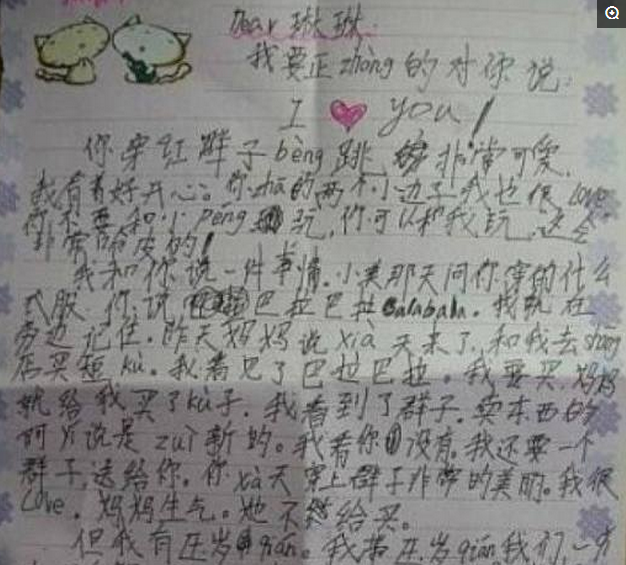 Dear 琳琳.
我要正zhòng的对你说:
I you!
你穿红群子bèng跳 非常可爱.
我看着好开心。你zhā的两个小边子我也很love
你不要和小péng 玩,你可以和我玩,这会
非常 皮的!
我和你说一件事情.小美那天问你穿的什么
衣服.你说 巴拉巴拉Balabala.我就在
旁边记住.昨天妈妈说xià天来了.和我去shāng
店买短kù.我看见了巴拉巴拉.我要买.妈妈
就给我买了kù子.我看到了群子.卖东西的
阿 说是zuì新的。我看你 没有.我还要一个
群子.送给你.你xà天穿上群子非常的美丽.我很
Love.妈妈生气。她不 给买。
但我有压岁qián。我带压岁qián我们一